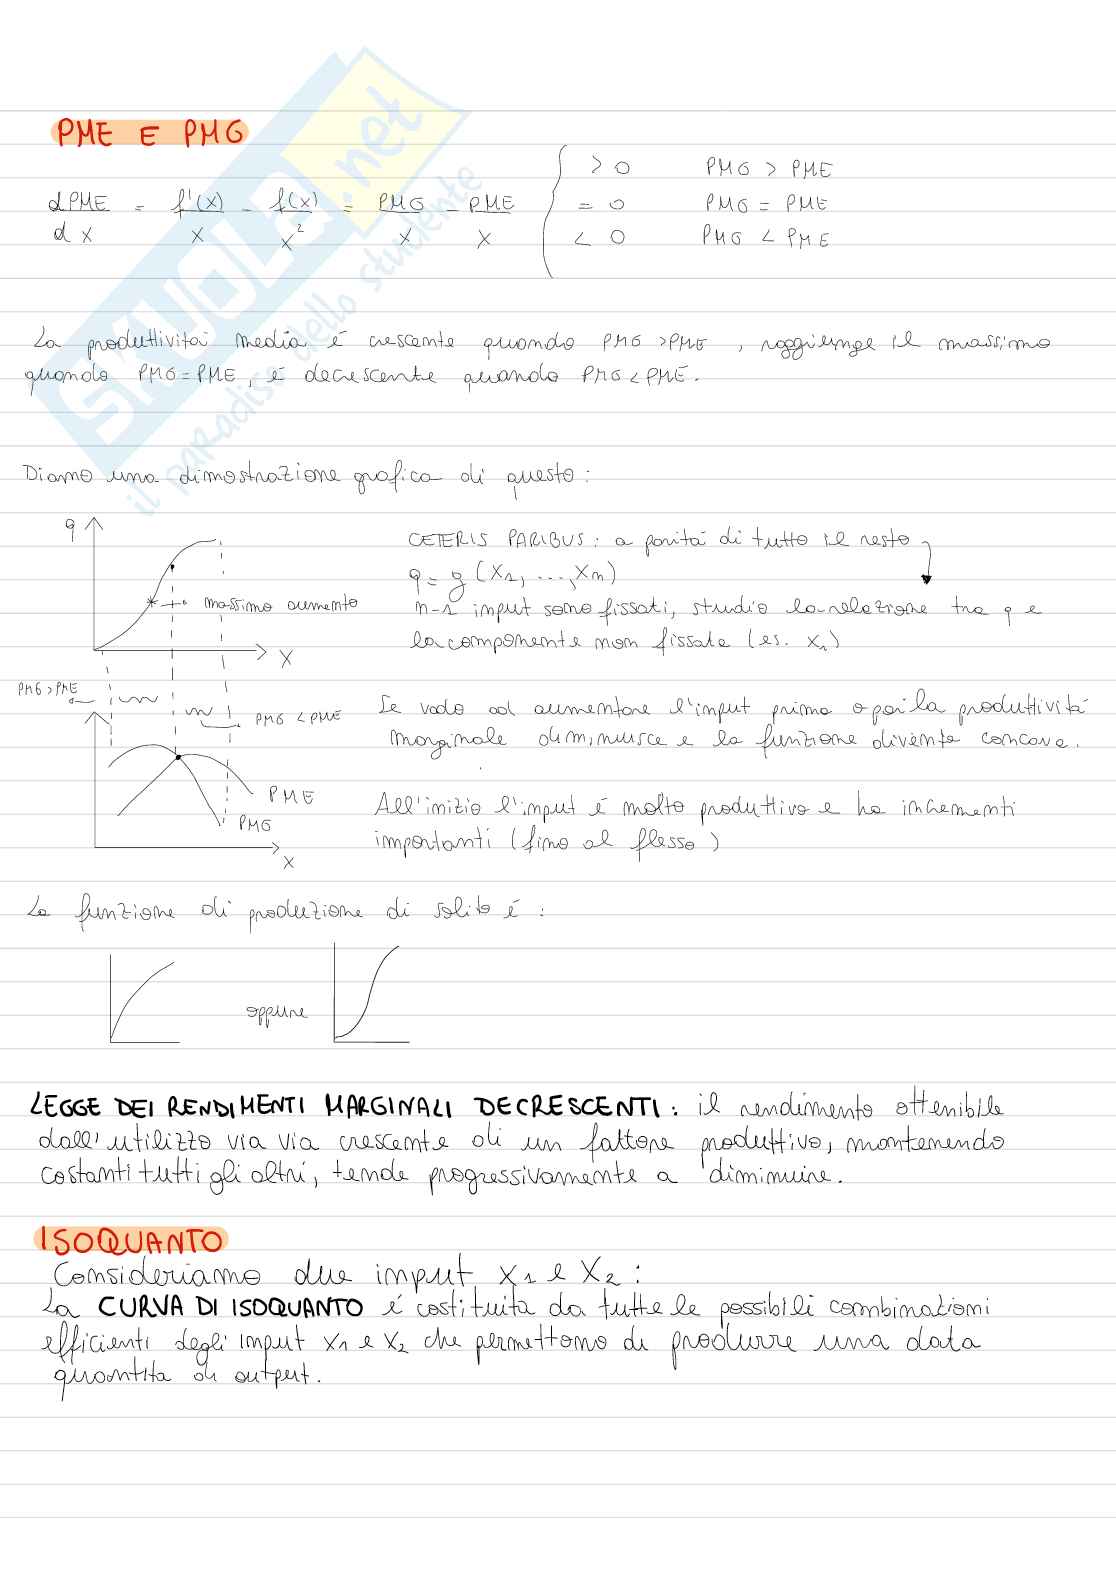 PME E PMG
dPME/dx = f'(x)/x - f(x)/x² = PMG/x - PME/x { > 0 PMG > PME
= 0 PMG = PME
< 0 PMG < PME
La produttività media é crescente quando PMG >PME , raggiunge il massimo
quando PMG = PME, é decrescente quando PMG < PME.
Diamo una dimostrazione grafica di questo :
q
massimo aumento
x
PMG > PME
PMG < PME
PME
PMG
x
CETERIS PARIBUS : a parità di tutto il resto
q = g (x1, ..., xn)
n-1 input sono fissati, studio la relazione tra q e
la componente non fissata (es. x1)
Se vado ad aumentare l'input prima o poi la produttività
marginale diminuisce e la funzione diventa concava.
All'inizio l'input é molto produttivo e ha incrementi
importanti (fino al flesso)
La funzione di produzione di solito é :
oppure
LEGGE DEI RENDIMENTI MARGINALI DECRESCENTI : il rendimento ottenibile
dall'utilizzo via via crescente di un fattore produttivo, mantenendo
costanti tutti gli altri, tende progressivamente a diminuire.
ISOQUANTO
Consideriamo due input x1 e x2 :
La CURVA DI ISOQUANTO é costituita da tutte le possibili combinazioni
efficienti degli input x1 e x2 che permettono di produrre una data
quantità di output.
SKUOLA.net
il paradiso dello studente